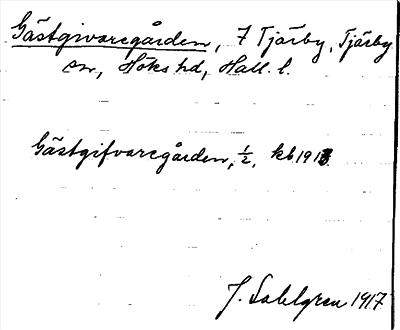 Gästgivaregården, 7 Tjärby, Tjärby
sn, Höks hd, Hall. l.
Gästgifvaregården, 1/2, kb 1913.
J. Sahlgren 1917